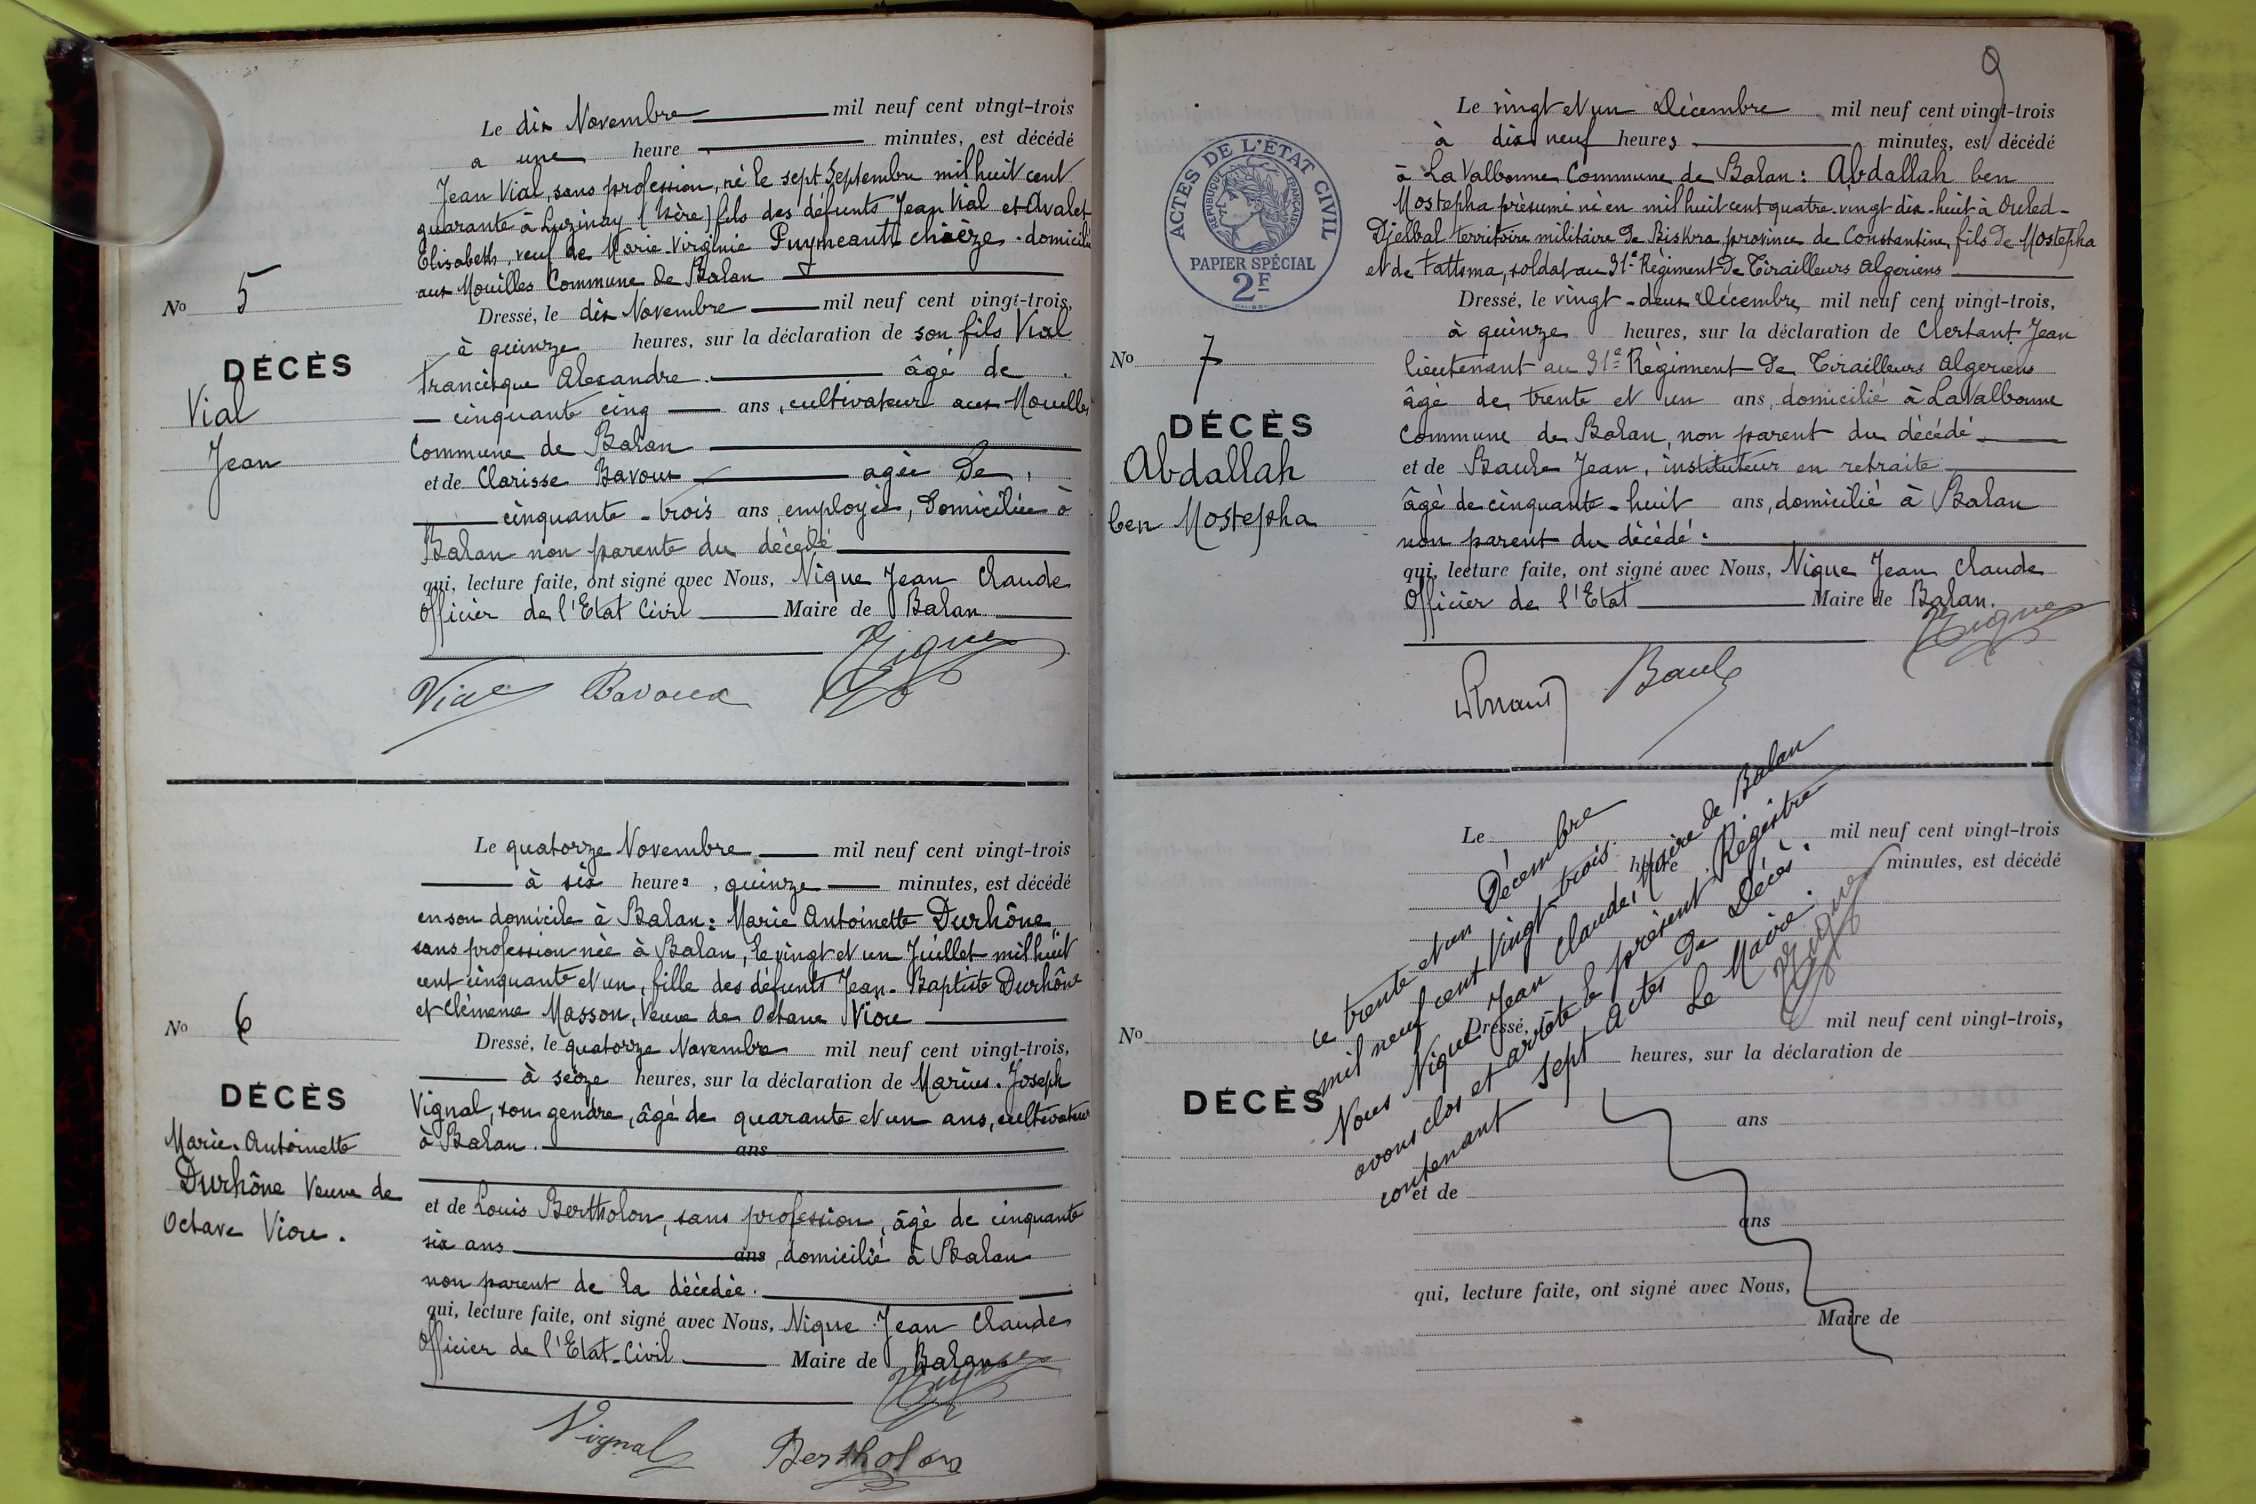 Le dix Novembre mil neuf cent vingt-trois
a une heure minutes, est décédé
Jean Vial, sans profession, né le sept Septembre mil huit cent
quarante à Luzinay (Isère) fils des défunts Jean Vial et Avalet
Elisabeth, veuf de Marie-Virginie domicilié
aux Mouilles Commune de Balan
No 5
DÉCÈS
Vial
Jean
Dressé, le dix Novembre mil neuf cent vingt-trois,
à quinze heures, sur la déclaration de son fils Vial
Francisque Alexandre âgé de
cinquante cinq ans, cultivateur aux Mouilles
Commune de Balan
et de Clarisse Bavoux agée de
cinquante-trois ans, employée, Domiciliée à
Balan non parente du décédé
qui, lecture faite, ont signé avec Nous, Nique Jean Claude
Officier de l'Etat Civil Maire de Balan
Nique
Vial Bavoux
Le quatorze Novembre mil neuf cent vingt-trois
à six heures, quinze minutes, est décédé
en son domicile à Balan: Marie Antoinette Durhône,
sans profession née à Balan, le vingt et un Juillet mil huit
cent cinquante et un, fille des défunts Jean-Baptiste Durhône
et Clémence Masson, Veuve de Octave Viou
No 6
DÉCÈS
Marie-Antoinette
Durhône Veuve de
Octave Viou.
Dressé, le quatorze Novembre mil neuf cent vingt-trois,
à seize heures, sur la déclaration de Marius-Joseph
Vignal, son gendre, âgé de quarante et un ans, cultivateur
à Balan. ans
et de Louis Bertholon, sans profession, âgé de cinquante
six ans ans, domicilié à Balan
non parent de la décédée.
qui, lecture faite, ont signé avec Nous, Nique Jean Claude
Officier de l'Etat-Civil Maire de Balan
Nique
Vignal Bertholon
9
ACTES DE L'ÉTAT CIVIL
RÉPUBLIQUE FRANÇAISE
PAPIER SPÉCIAL
2F
Le vingt et un Décembre mil neuf cent vingt-trois
à dix neuf heures minutes, est décédé
à La Valbonne Commune de Balan: Abdallah ben
Mostepha présumé né en mil huit cent quatre-vingt dix-huit à Ouled-
Djelbal territoire militaire de Biskra province de Constantine, fils de Mostepha
et de Fattoma, soldat au 31e Régiment de Tirailleurs Algeriens
No 7
DÉCÈS
Abdallah
ben Mostepha
Dressé, le vingt-deux Décembre mil neuf cent vingt-trois,
à quinze heures, sur la déclaration de Clertant Jean
lieutenant au 31e Régiment de Tirailleurs Algeriens
âgé de trente et un ans, domicilié à La Valbonne
Commune de Balan, non parent du décédé
et de Baule Jean, instituteur en retraite
âgé de cinquante-huit ans, domicilié à Balan
non parent du décédé:
qui, lecture faite, ont signé avec Nous, Nique Jean Claude
Officier de l'Etat Maire de Balan.
Nique
Baule
Le mil neuf cent vingt-trois
heure minutes, est décédé
No
DÉCÈS
Dressé, le mil neuf cent vingt-trois,
heures, sur la déclaration de
ans
et de
ans
qui, lecture faite, ont signé avec Nous,
Maire de
Ce trente et un Décembre
mil neuf cent Vingt-trois
Nous Nique Jean Claude, Maire de Balan
avons clos et arrêté le présent Régistre
contenant sept actes de Décès.
Le Maire.
Nique